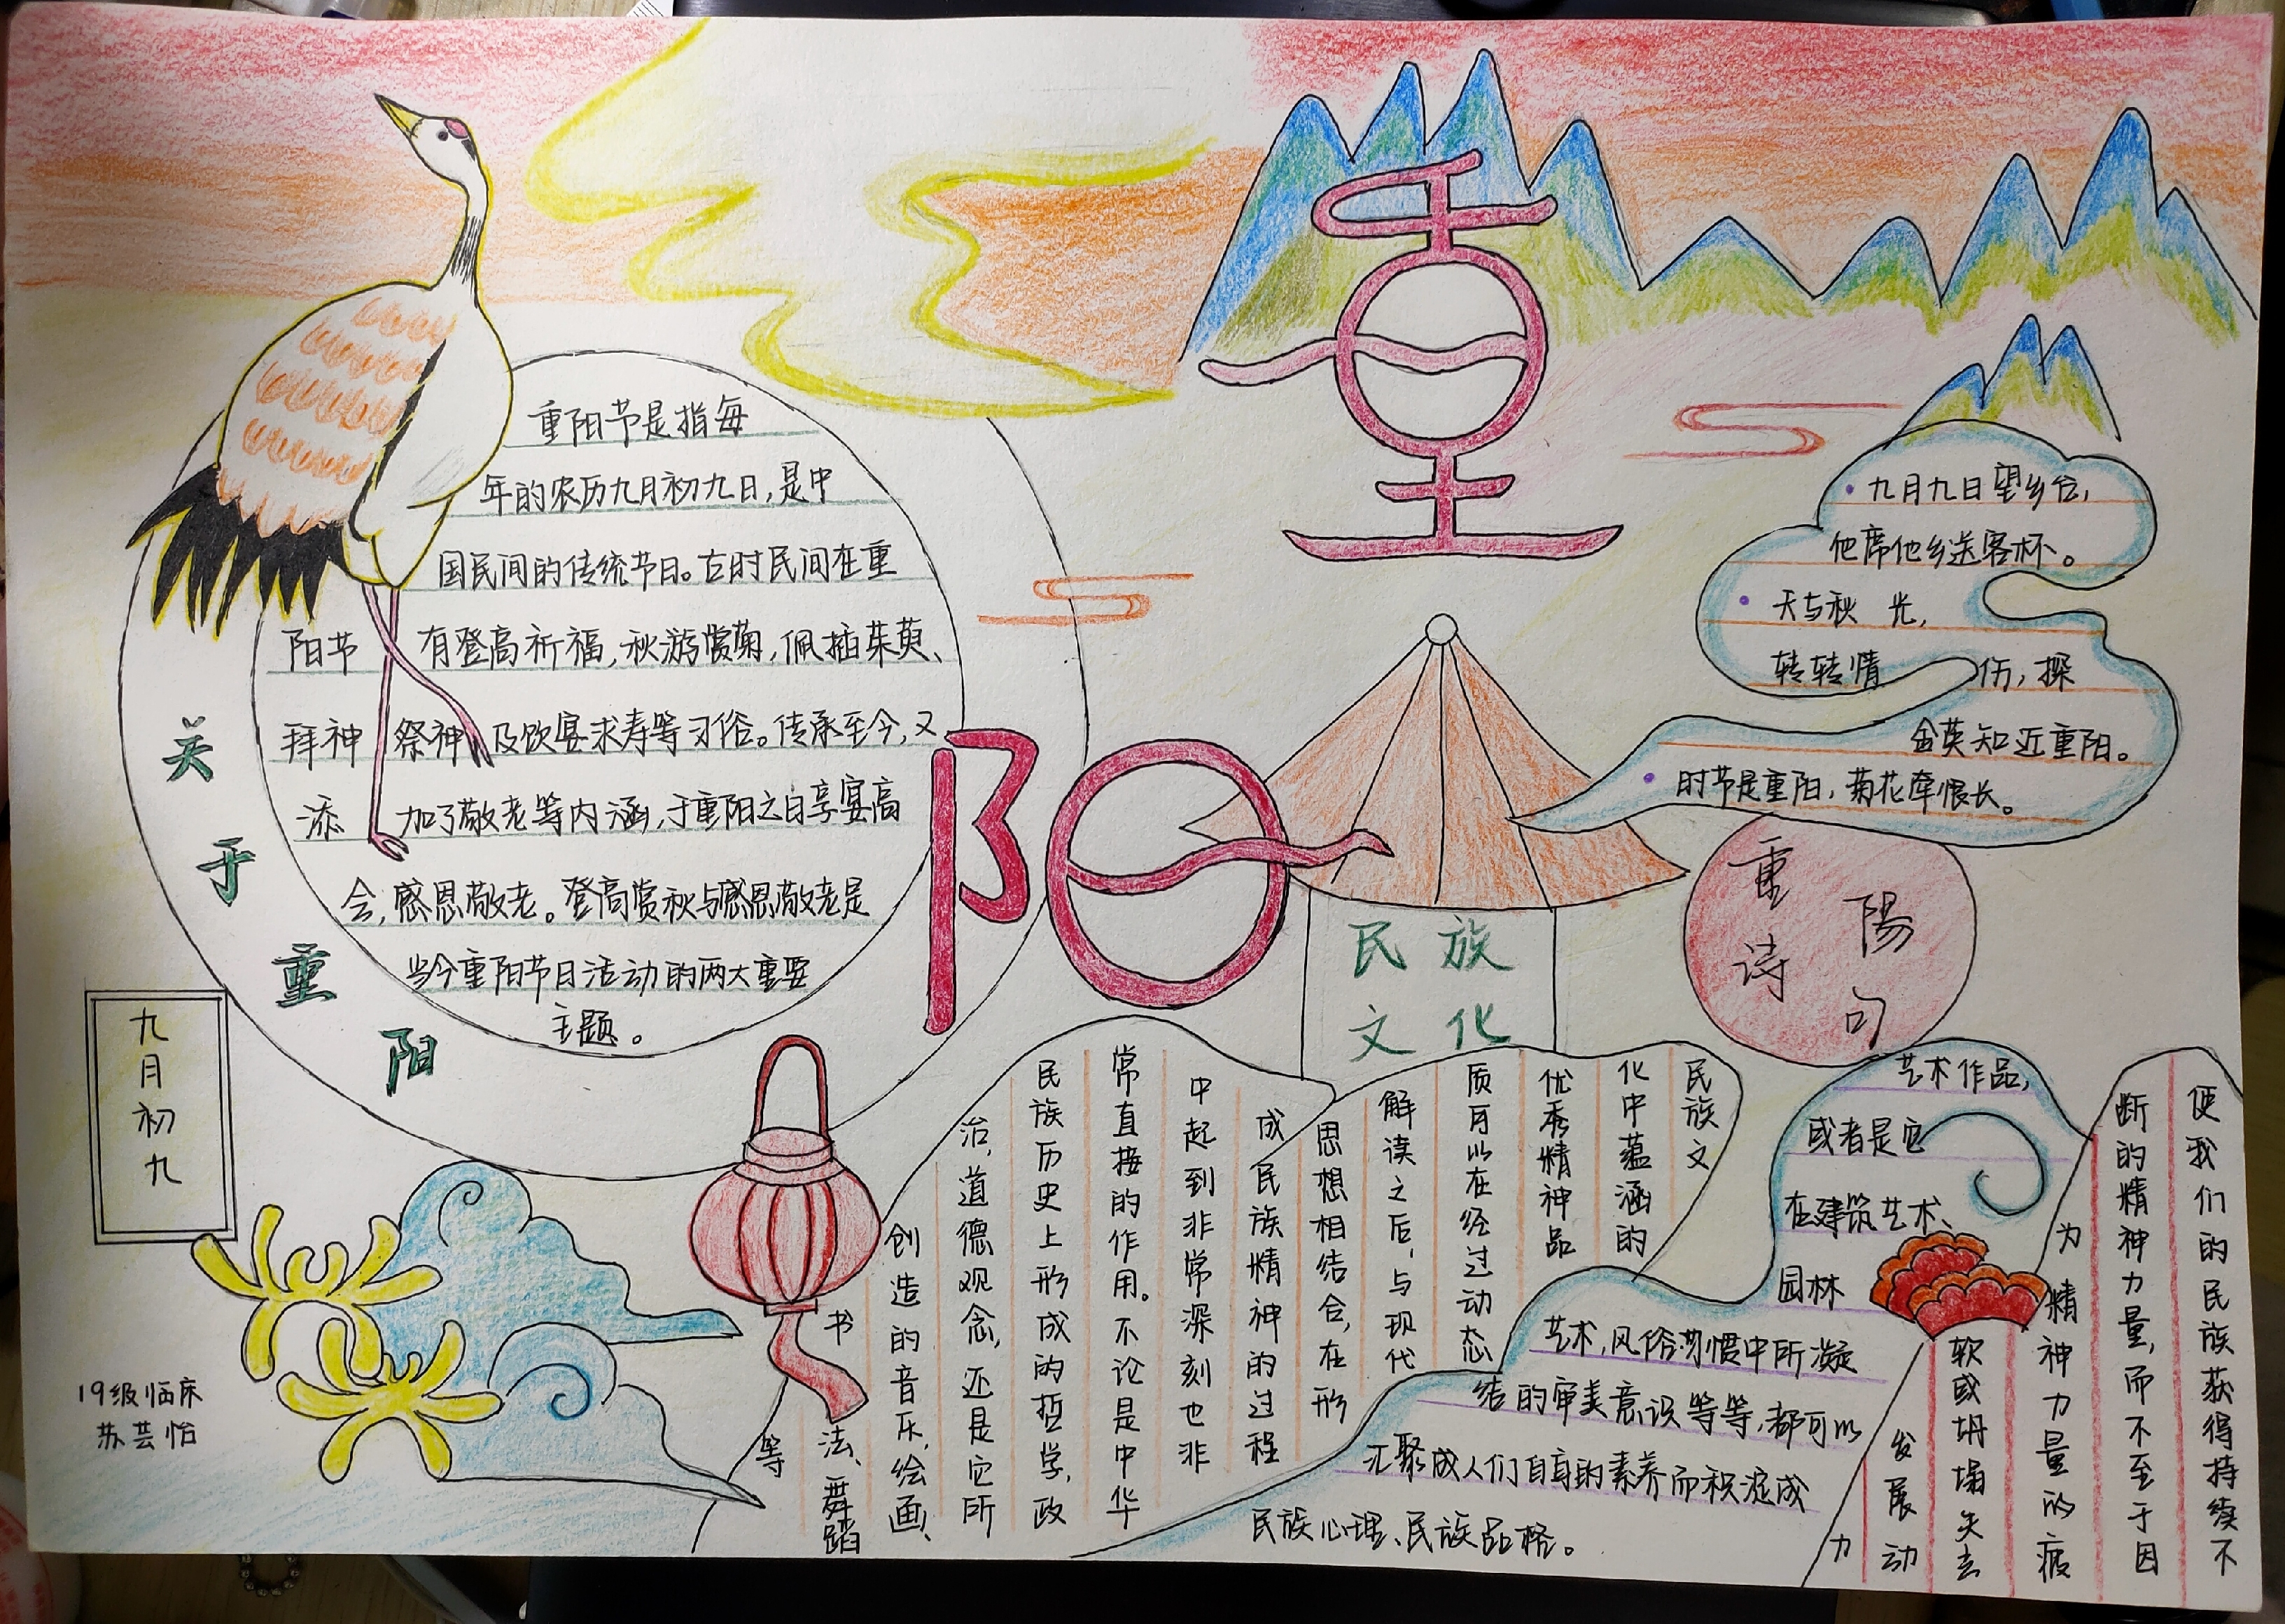 重
阳
重阳节是指每
年的农历九月初九日,是中
国民间的传统节日。古时民间在重
阳节 有登高祈福,秋游赏菊,佩插茱萸、
拜神 祭神 及饮宴求寿等习俗。传承至今,又
添 加了敬老等内涵,于重阳之日享宴高
会,感恩敬老。登高赏秋与感恩敬老是
当今重阳节日活动的两大重要
主题。
关于重阳
九月初九
19级临床
苏芸怡
九月九日望乡台,
他席他乡送客杯。
天与秋 光,
转转情 伤,探
金英知近重阳。
时节是重阳,菊花牵恨长。
重陽
诗句
民族
文化
民族文
化中蕴涵的
优秀精神品
质可以在经过动态
解读之后,与现代
思想相结合,在形
成民族精神的过程
中起到非常深刻也非
常直接的作用。不论是中华
民族历史上形成的哲学,政
治,道德观念,还是它所
创造的音乐,绘画、
书法、舞蹈
等
艺术作品,
或者是它
在建筑艺术、
园林
艺术,风俗习惯中所凝
结的审美意识等等,都可以
汇聚成人们自身的素养而积淀成
民族心理、民族品格。
使我们的民族获得持续不
断的精神力量,而不至于因
为精神力量的疲
软或坍塌失去
发展动
力